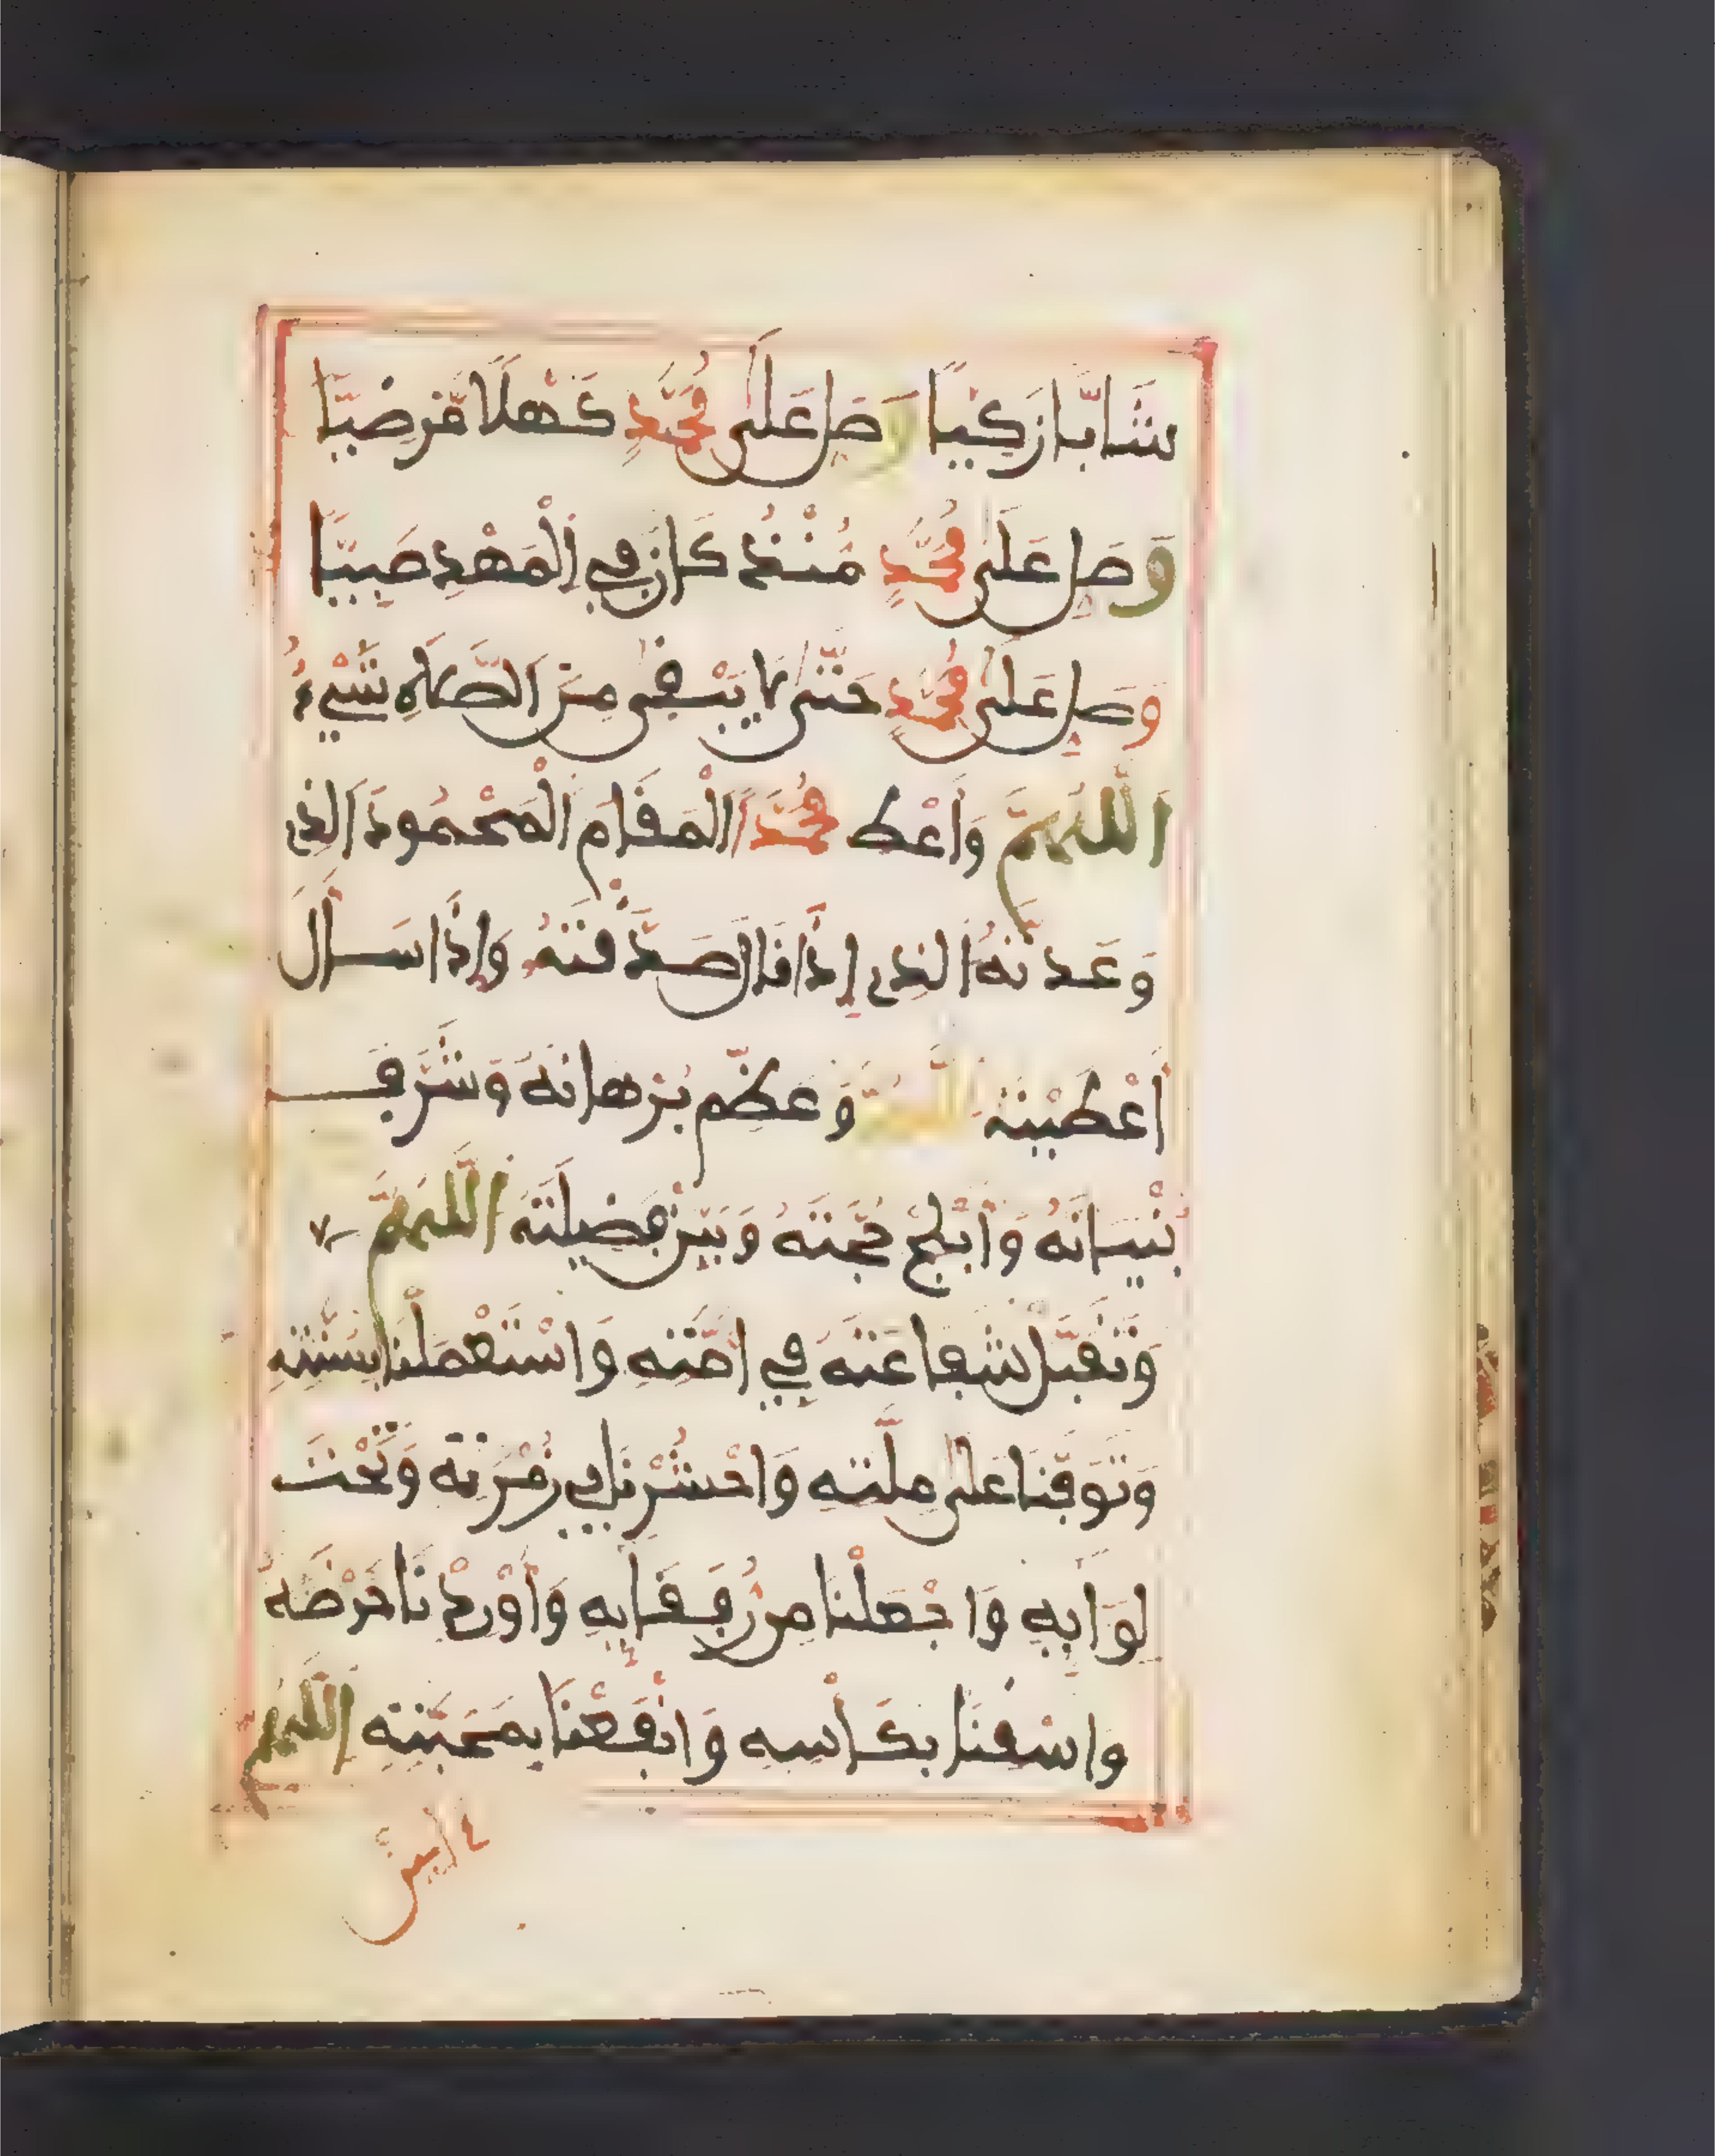 شَابًّا زَكِيًّا وَصَلِّ عَلَى مُحَمَّدٍ كَهْلًا مَّرْضِيًّا
وَصَلِّ عَلَى مُحَمَّدٍ مُنْذُ كَانَ فِي الْمَهْدِ صَبِيًّا
وَصَلِّ عَلَى مُحَمَّدٍ حَتَّى لَا يَبْقَى مِنَ الصَّلَاةِ شَيْءٌ
اللَّهُمَّ وَأَعْطِ مُحَمَّدًا الْمَقَامَ الْمَحْمُودَ الَّذِي
وَعَدتَّهُ الَّذِي إِذَا قَالَ صَدَّقْتَهُ وَإِذَا سَأَلَ
أَعْطَيْتَهُ اللَّهُمَّ وَعَظِّمْ بُرْهَانَهُ وَشَرِّفْ
بُنْيَانَهُ وَأَبْلِجْ حُجَّتَهُ وَبَيِّنْ فَضِيلَتَهُ اللَّهُمَّ
وَتَقَبَّلْ شَفَاعَتَهُ فِي أُمَّتِهِ وَاسْتَعْمِلْنَا بِسُنَّتِهِ
وَتَوَفَّنَا عَلَى مِلَّتِهِ وَاحْشُرْنَا فِي زُمْرَتِهِ وَتَحْتَ
لِوَائِهِ وَاجْعَلْنَا مِن رُفَقَائِهِ وَأَوْرِدْنَا حَوْضَهُ
وَاسْقِنَا بِكَأْسِهِ وَانْفَعْنَا بِمَحَبَّتِهِ اللَّهُمَّ
ءامين